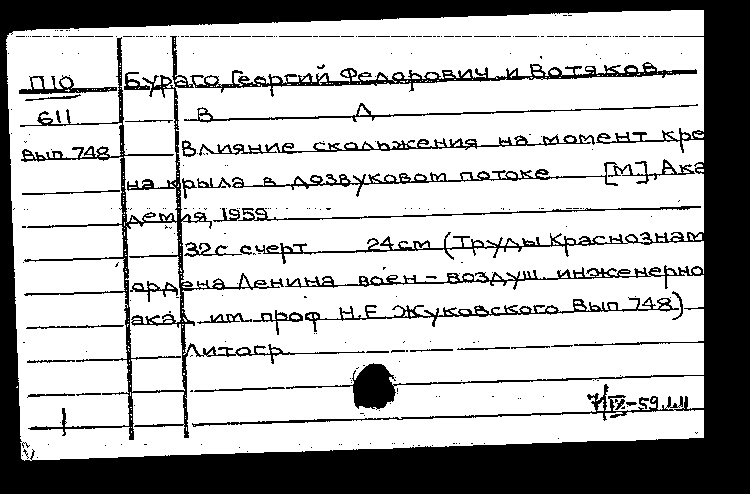 П10 Бураго, Георгий Федорович и Вотяков,
611 В Д
Вып. 748 Влияние скольжения на момент кре
на крыла в дозвуковом потоке. [М], Ака
демия, 1959.
32с с черт 24 см (Труды Краснознам
ордена Ленина воен-воздуш инженерно
акад им. проф Н.Е Жуковского Вып 748)
Литогр.
7/IX-59
1